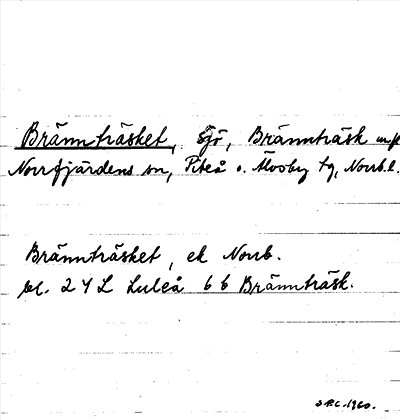 Brännträsket, sjö, Brännträsk m.fl
Norrfjärdens sn, Piteå o. Älvsby tg, Norrb.l.
Brännträsket, ek Norrb.
bl. 24 L Luleå 6 b Brännträsk.
1960.